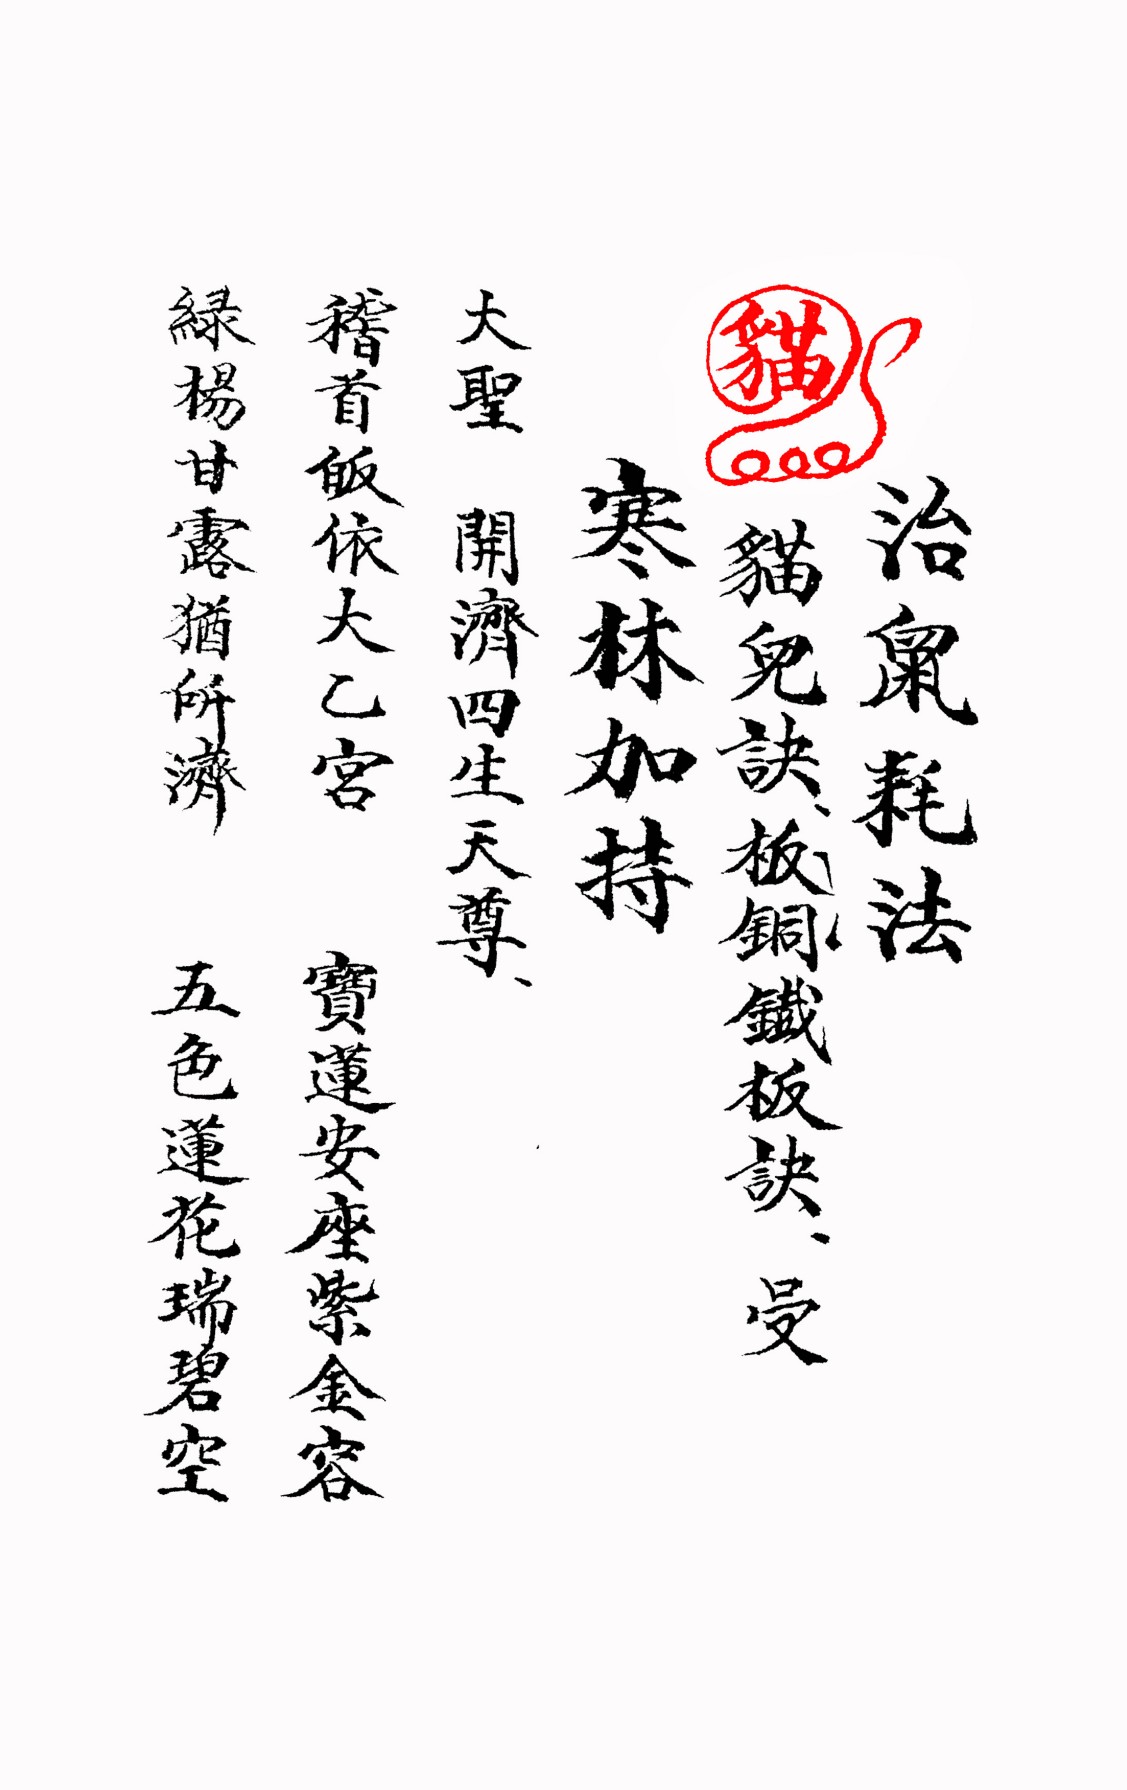 治鼠耗法
貓
貓兒訣、板銅鐵板訣、受
寒林加持
大聖 開濟四生天尊、
稽首皈依大乙宮 寶蓮安座紫金容
緑楊甘露猶所濟 五色蓮花瑞碧空